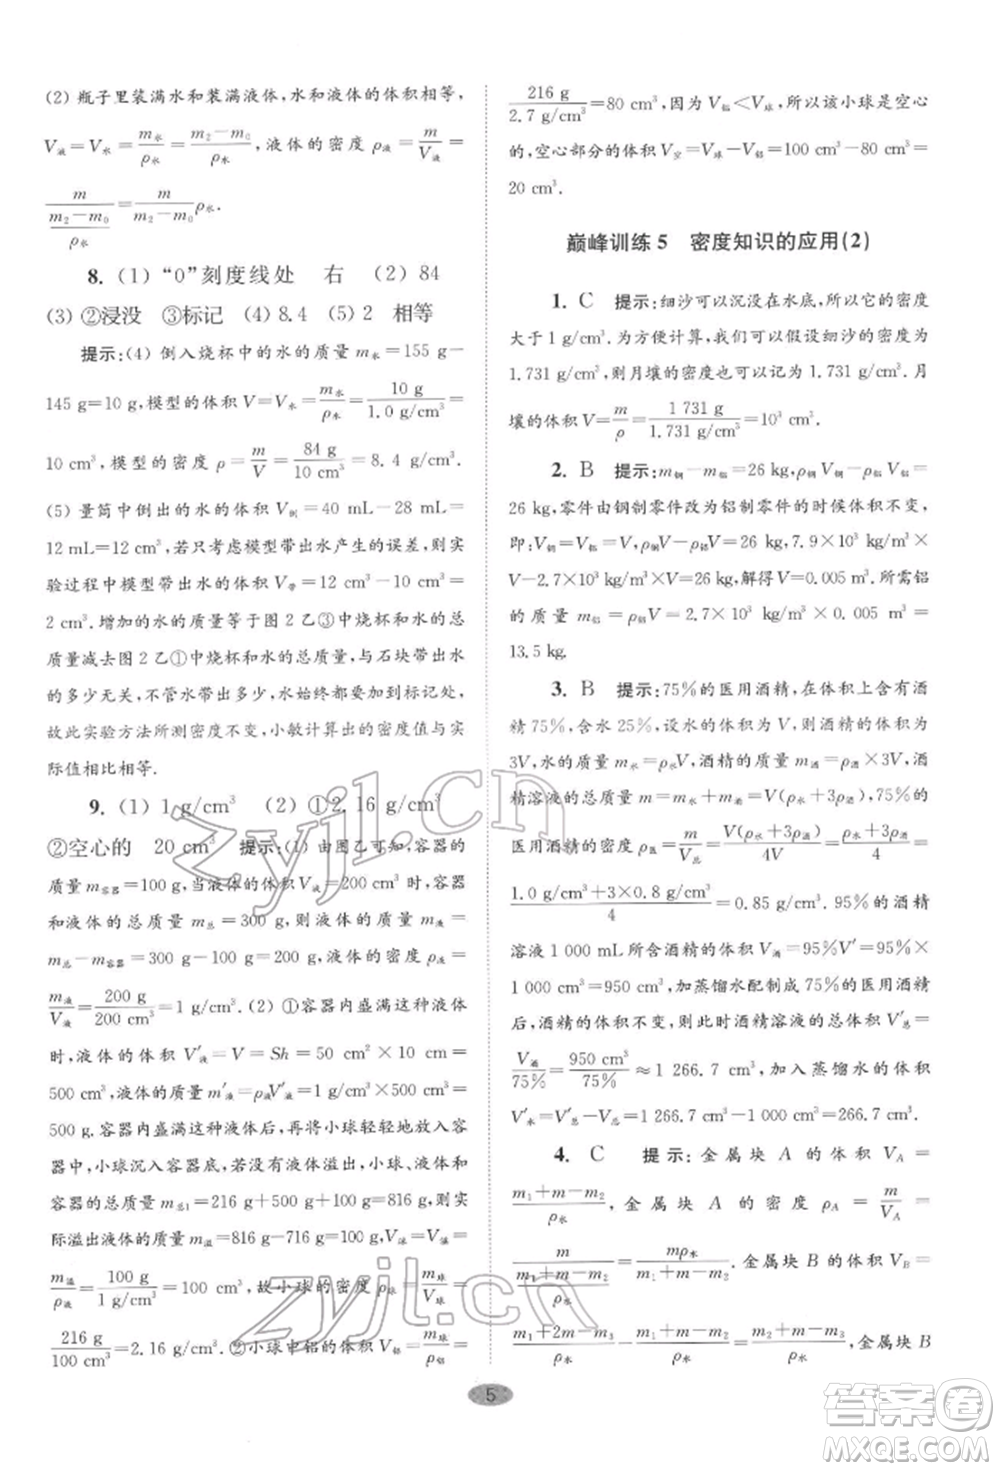 (2) 瓶子里装满水和装满液体,水和液体的体积相等,
V液=V水=m水/ρ水=(m₂-m₀)/ρ水,液体的密度 ρ液=m/V液=
m/((m₂-m₀)/ρ水)=m/(m₂-m₀)ρ水.
8. (1) “0”刻度线处 右 (2) 84
(3) ②浸没 ③标记 (4) 8.4 (5) 2 相等
提示:(4) 倒入烧杯中的水的质量 m水=155 g-
145 g=10 g,模型的体积 V=V水=m水/ρ水=10 g/1.0 g/cm³=
10 cm³,模型的密度 ρ=m/V=84 g/10 cm³=8.4 g/cm³.
(5) 量筒中倒出的水的体积 V倒=40 mL-28 mL=
12 mL=12 cm³,若只考虑模型带出水产生的误差,则实
验过程中模型带出水的体积 V带=12 cm³-10 cm³=
2 cm³.增加的水的质量等于图 2 乙③中烧杯和水的总
质量减去图 2 乙①中烧杯和水的总质量,与石块带出水
的多少无关,不管水带出多少,水始终都加到标记处,
故此实验方法所测密度不变,小敏计算出的密度值与实
际值相比相等.
9. (1) 1 g/cm³ (2) ①2.16 g/cm³
②空心的 20 cm³ 提示:(1) 由图乙可知,容器的
质量 m容器=100 g,当液体的体积 V液=200 cm³ 时,容器
和液体的总质量 m总=300 g,则液体的质量 m液=
m总-m容器=300 g-100 g=200 g,液体的密度 ρ液=
m液/V液=200 g/200 cm³=1 g/cm³.(2) ①容器内盛满这种液体
时,液体的体积 V′液=V=Sh=50 cm²×10 cm=
500 cm³,液体的质量 m′液=ρ液V′液=1 g/cm³×500 cm³=
500 g.容器内盛满这种液体后,再将小球轻轻地放入容
器中,小球沉入容器底,有液体溢出,小球、液体与容器
的总质量 m总1=216 g+500 g+100 g=816 g,则实
际溢出液体的质量 m溢=816 g-716 g=100 g,V球=V溢=
m溢/ρ液=100 g/1 g/cm³=100 cm³,故小球的密度 ρ球=m球/V球=
216 g/100 cm³=2.16 g/cm³.②小球中铝的体积 V铝=m球/ρ铝=
216 g/2.7 g/cm³=80 cm³,因为 V铝<V球,所以该小球是空心
的,空心部分的体积 V空=V球-V铝=100 cm³-80 cm³=
20 cm³.
巅峰训练 5 密度知识的应用(2)
1. C 提示:细沙可以沉没在水底,所以它的密度
大于 1 g/cm³.为方便计算,我们可以假设细沙的密度为
1.731 g/cm³,则月壤的密度也可以记为 1.731 g/cm³.月
壤的体积 V=m/ρ=1 731 g/1.731 g/cm³=10³ cm³.
2. B 提示:m钢-m铝=26 kg,ρ钢V钢-ρ铝V铝=
26 kg,零件由钢制零件改为铝制零件的时候体积不变,
即:V钢=V铝=V,ρ钢V-ρ铝V=26 kg,7.9×10³×
V-2.7×10³×V=26 kg,解得 V=0.005 m³.所需铝
的质量 m铝=ρ铝V=2.7×10³ kg/m³×0.005 m³=
13.5 kg.
3. B 提示:75%的医用酒精,在体积上含有酒
精 75%,含水 25%,设水的体积为 V,则酒精的体积为
3V,水的质量 m水=ρ水V,酒精的质量 m酒=ρ酒×3V,酒
精溶液的总质量 m=m水+m酒=V(ρ水+3ρ酒),75%的
医用酒精溶液的密度 ρ医=m/V总=V(ρ水+3ρ酒)/4V=(ρ水+3ρ酒)/4=
(1.0 g/cm³+3×0.8 g/cm³)/4=0.85 g/cm³.95%的酒精
溶液 1 000 mL 所含酒精的体积 V酒=95%V′=95%×
1 000 cm³=950 cm³,加蒸馏水配制成 75%的酒精溶液
时,酒精的体积不变,则此时酒精溶液的总体积 V′总=
V酒/75%=950 cm³/75%≈1 266.7 cm³,加入蒸馏水的体积
V′水=V′总-V总=1 266.7 cm³-1 000 cm³=266.7 cm³.
4. C 提示:金属块 A 的体积 V_A=
(m₁+m-m₂)/ρ水,金属块 A 的密度 ρ_A=m/V_A=
m/((m₁+m-m₂)/ρ水)=mρ水/(m₁+m-m₂),金属块 B 的体积 V_B=
(m₁+2m-m₃)/ρ水-(m₁+m-m₂)/ρ水=(m₂+m-m₃)/ρ水,金属块 B
5
zyjl.cn
zyjl.cn
答案圈
MXQE.COM